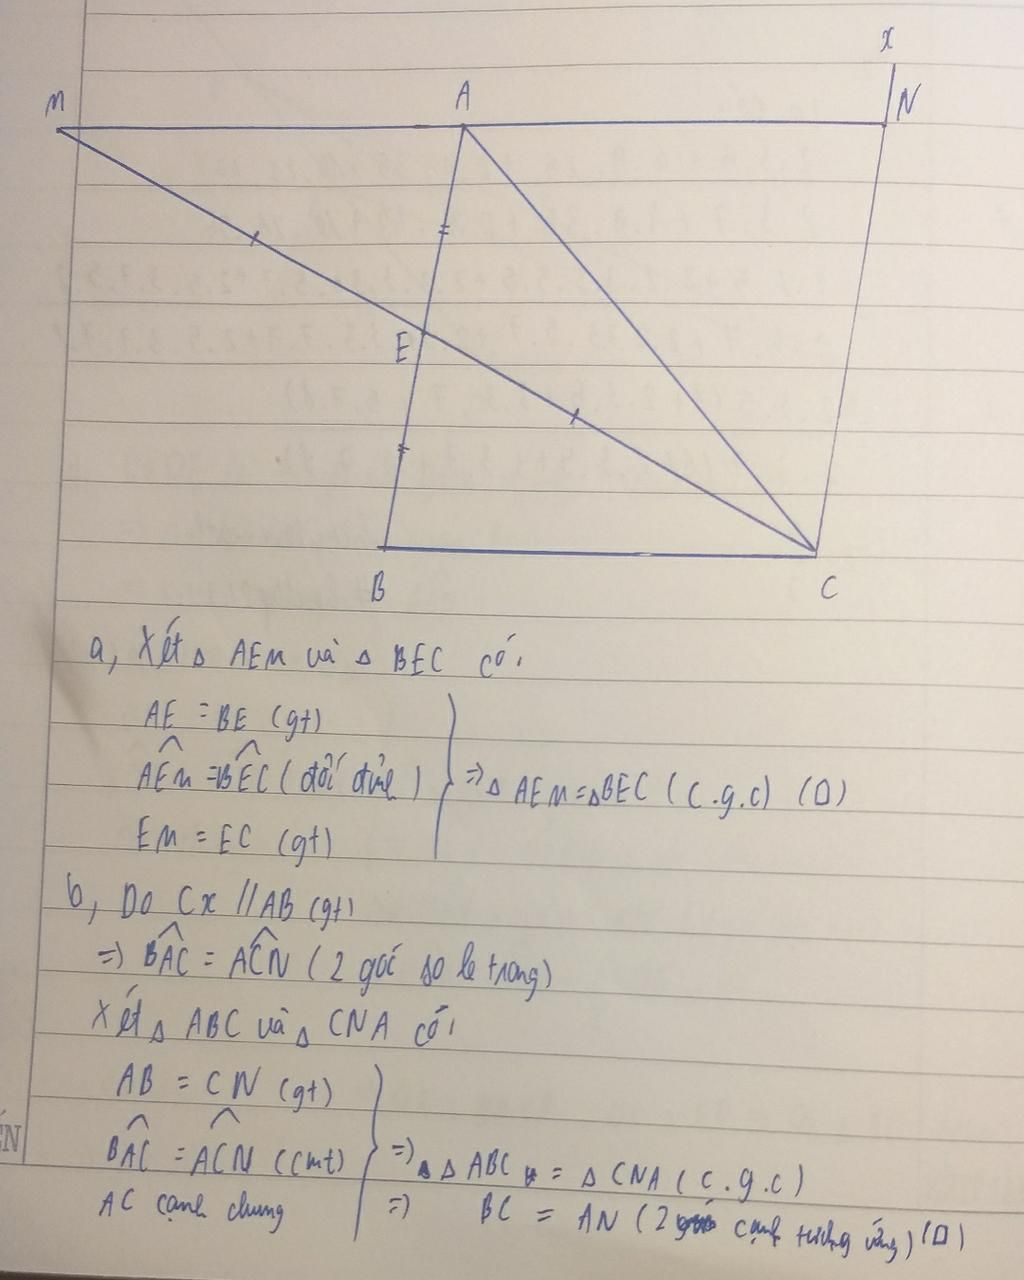 x
M A N
E
B C
a, Xét Δ AEM và Δ BEC có:
AE = BE (gt)
AEM = BEC (đối đỉnh) => Δ AEM = Δ BEC (c.g.c) (□)
EM = EC (gt)
b, Do Cx // AB (gt)
=> BAC = ACN (2 góc so le trong)
Xét Δ ABC và Δ CNA có:
AB = CN (gt)
BAC = ACN (cmt) => Δ ABC = Δ CNA (c.g.c)
AC cạnh chung => BC = AN (2 cạnh tương ứng) (□)